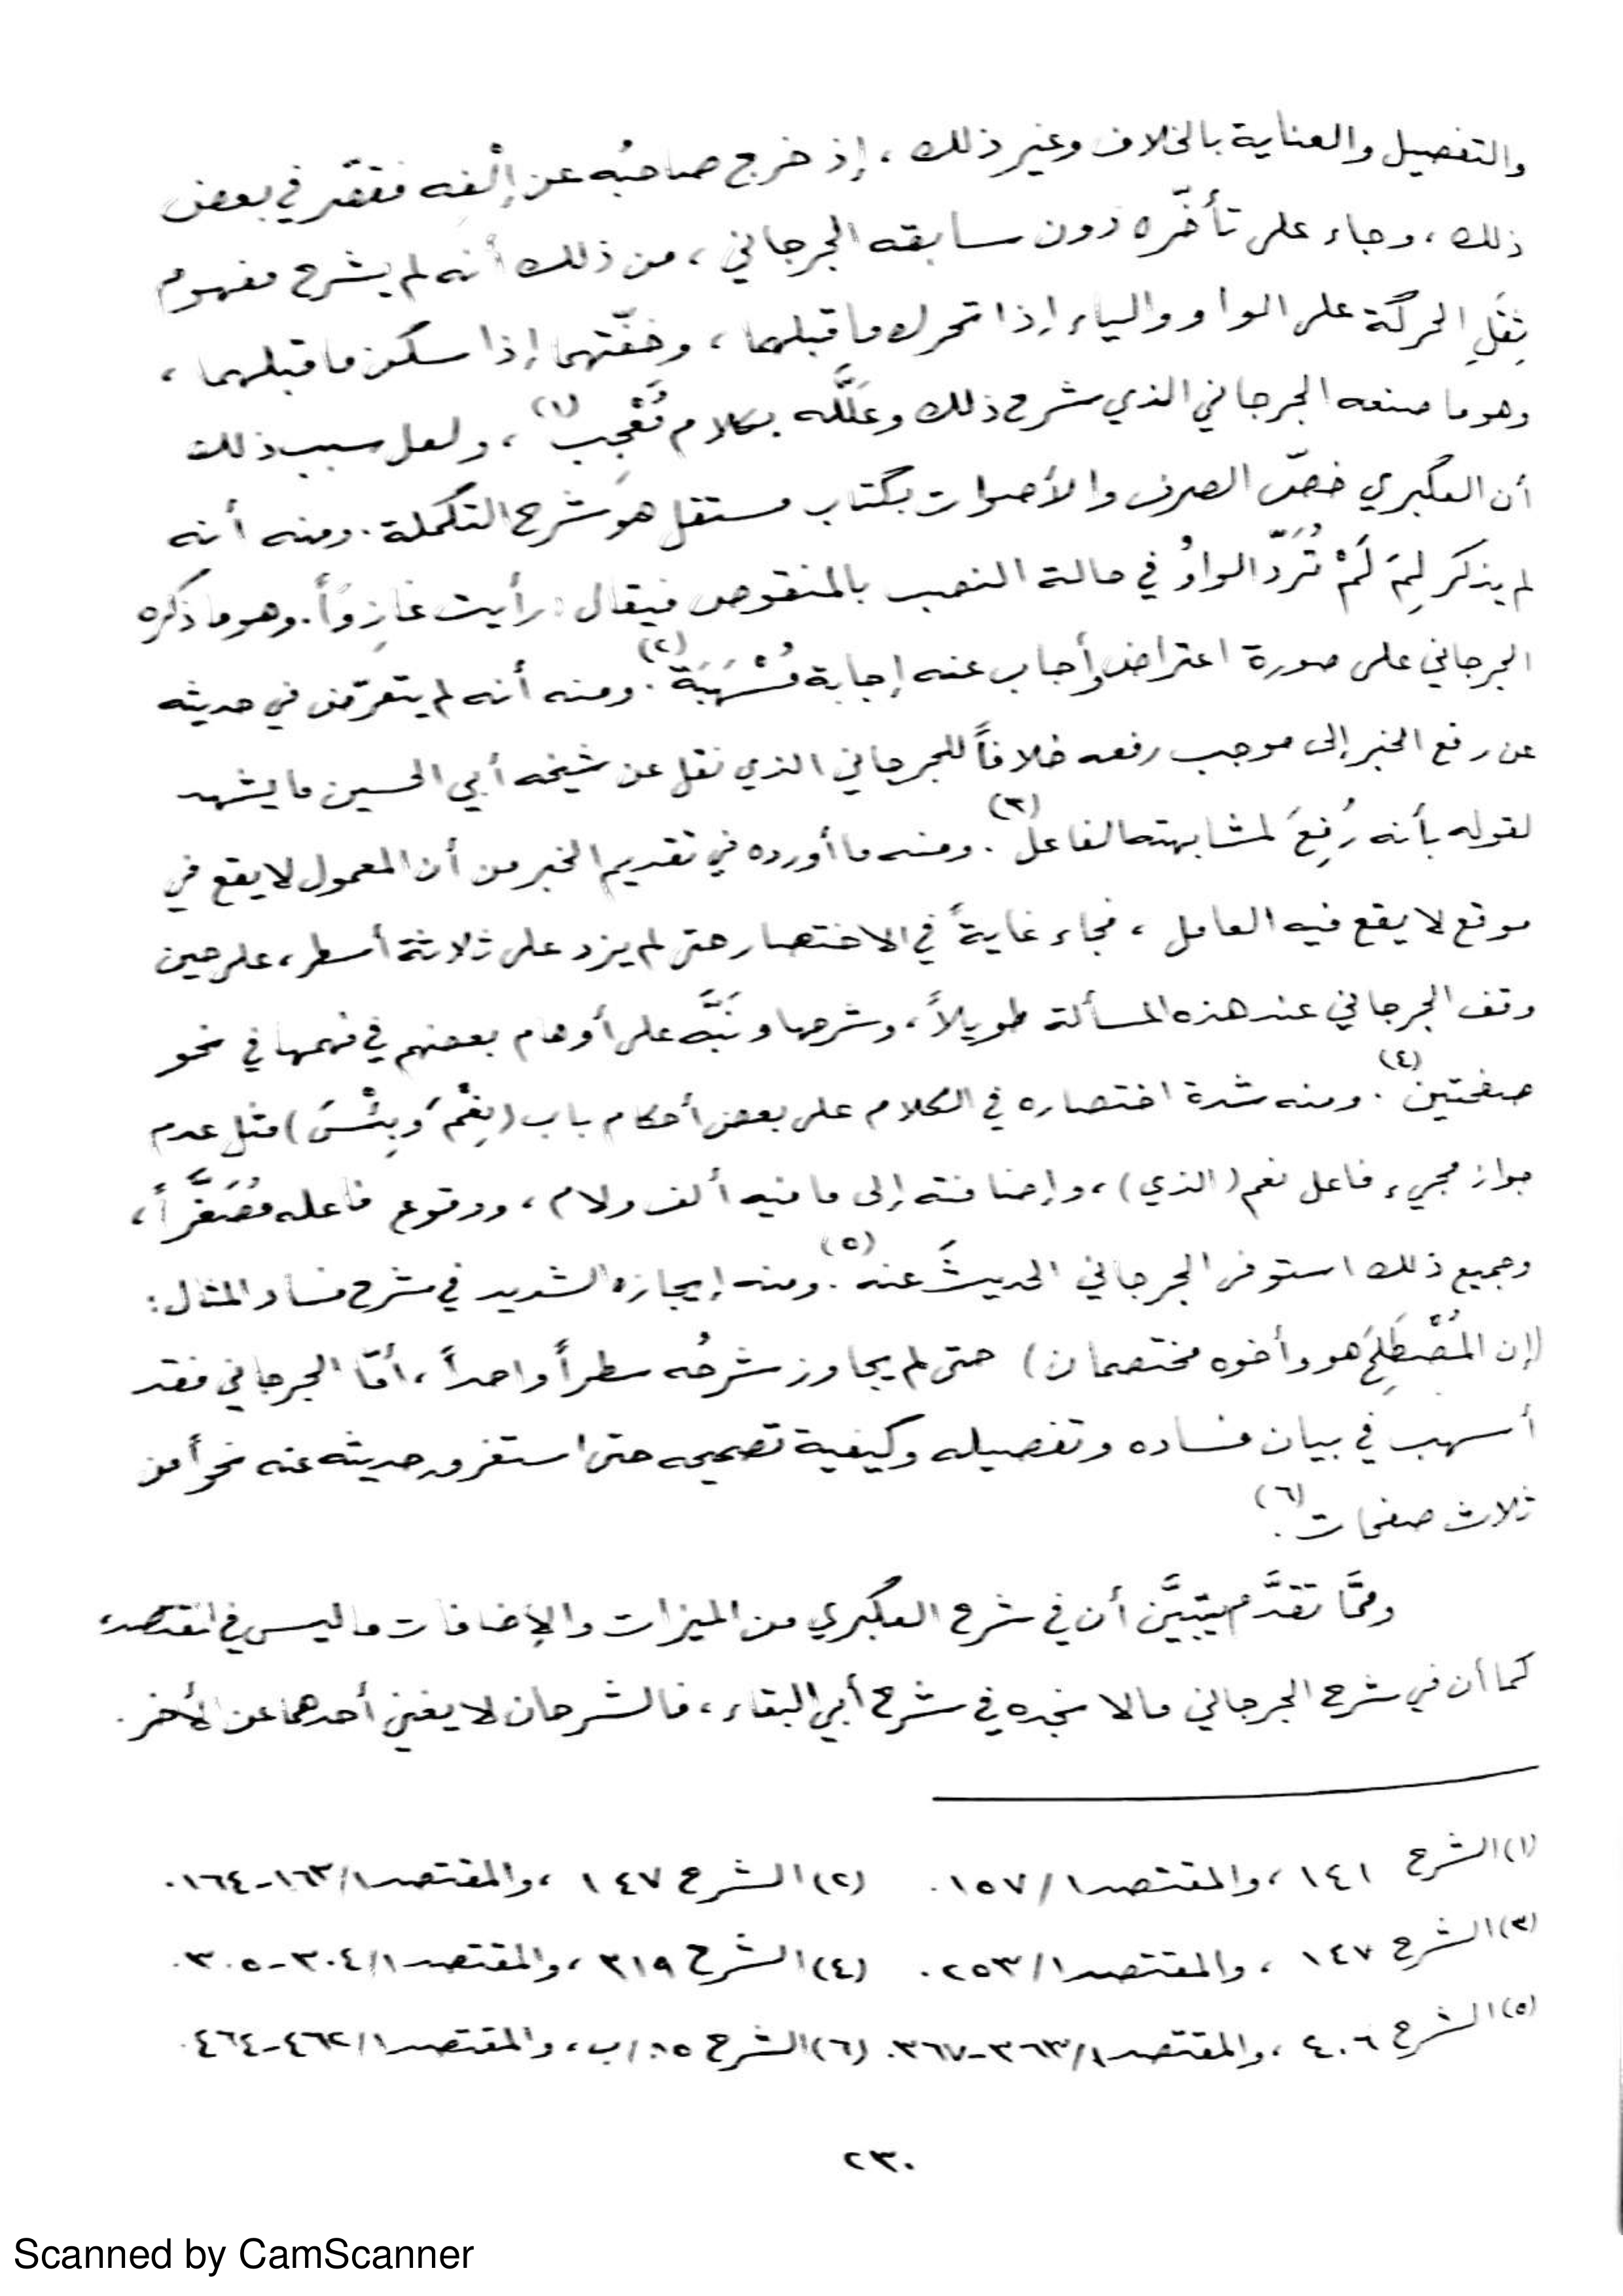 والتفصيل والعناية بالخلاف وغير ذلك ، إذ خرج صاحبُه عن إلْفِه فقصّر في بعض
ذلك ، وجاء على تأخّره دون سابقه الجرجاني ، من ذلك أنه لم يشرح مفهوم
ثِقَلِ الحركة على الواو والياء إذا تحرك ما قبلهما ، وخفّتهما إذا سكن ما قبلهما ،
وهو ما صنعه الجرجاني الذي شرح ذلك وعلَّله بكلام مُعْجِب (١) ، ولعل سبب ذلك
أن العكبري خصّ الصرف والأصوات بكتاب مستقل هو شرح التكملة . ومنه أنه
لم يذكر لِمَ لَمْ تُرَدّ الواوُ في حالة النصب بالمنقوص فيقال : رأيت غازِوَاً . وهو ما ذكره
الجرجاني على صورة اعتراض وأجاب عنه إجابة مُسْهَبَة (٢) . ومنه أنه لم يتعرّض في حديثه
عن رفع الخبر إلى موجب رفعه خلافاً للجرجاني الذي نقل عن شيخه أبي الحسين ما يشهد
لقوله بأنه رُفِعَ لمشابهته الفاعل (٣) . ومنه ما أورده في تقديم الخبر من أن المعمول لا يقع في
موقع لا يقع فيه العامل ، فجاء غايةً في الاختصار حتى لم يزد على ثلاثة أسطر ، على حين
وقف الجرجاني عند هذه المسألة طويلاً ، وشرحها ونَبَّه على أوهام بعضهم في فهمها في نحو
صفحتين (٤) . ومنه شدة اختصاره في الكلام على بعض أحكام باب ( نِعْمَ وَبِئْسَ ) مثل عدم
جواز مجيء فاعل نعم ( الذي ) ، وإضافته إلى ما فيه ألف ولام ، ووقوع فاعله مُصَغَّراً ،
وجميع ذلك استوفى الجرجاني الحديثَ عنه (٥) . ومنه إيجازه الشديد في شرح فساد المثال :
( إن المُصْطَلِحَ هو وأخوه مختصمان ) حتى لم يجاوز شرحُه سطراً واحداً ، أمّا الجرجاني فقد
أسهب في بيان فساده وتفصيله وكيفية تصحيحه حتى استغرق حديثه عنه نحواً من
ثلاث صفحات (٦) .
وممَّا تقدَّم يتبيَّن أن في شرح العكبري من الميزات والإضافات ما ليس في المقتصد ،
كما أن في شرح الجرجاني مالا نجده في شرح أبي البقاء ، فالشرحان لا يغني أحدهما عن الآخر .
(١) الشرح ١٤١ ، والمقتصد ١/١٥٧ . (٢) الشرح ١٤٧ ، والمقتصد ١/١٦٣-١٦٤ .
(٣) الشرح ١٤٧ ، والمقتصد ١/٢٥٣ . (٤) الشرح ٣١٩ ، والمقتصد ١/٣٠٤-٣٠٥ .
(٥) الشرح ٤٠٦ ، والمقتصد ١/٣٦٣-٣٦٧ . (٦) الشرح /ب ، والمقتصد ١/٤٦٢-٤٦٤ .
٢٣٠
Scanned by CamScanner